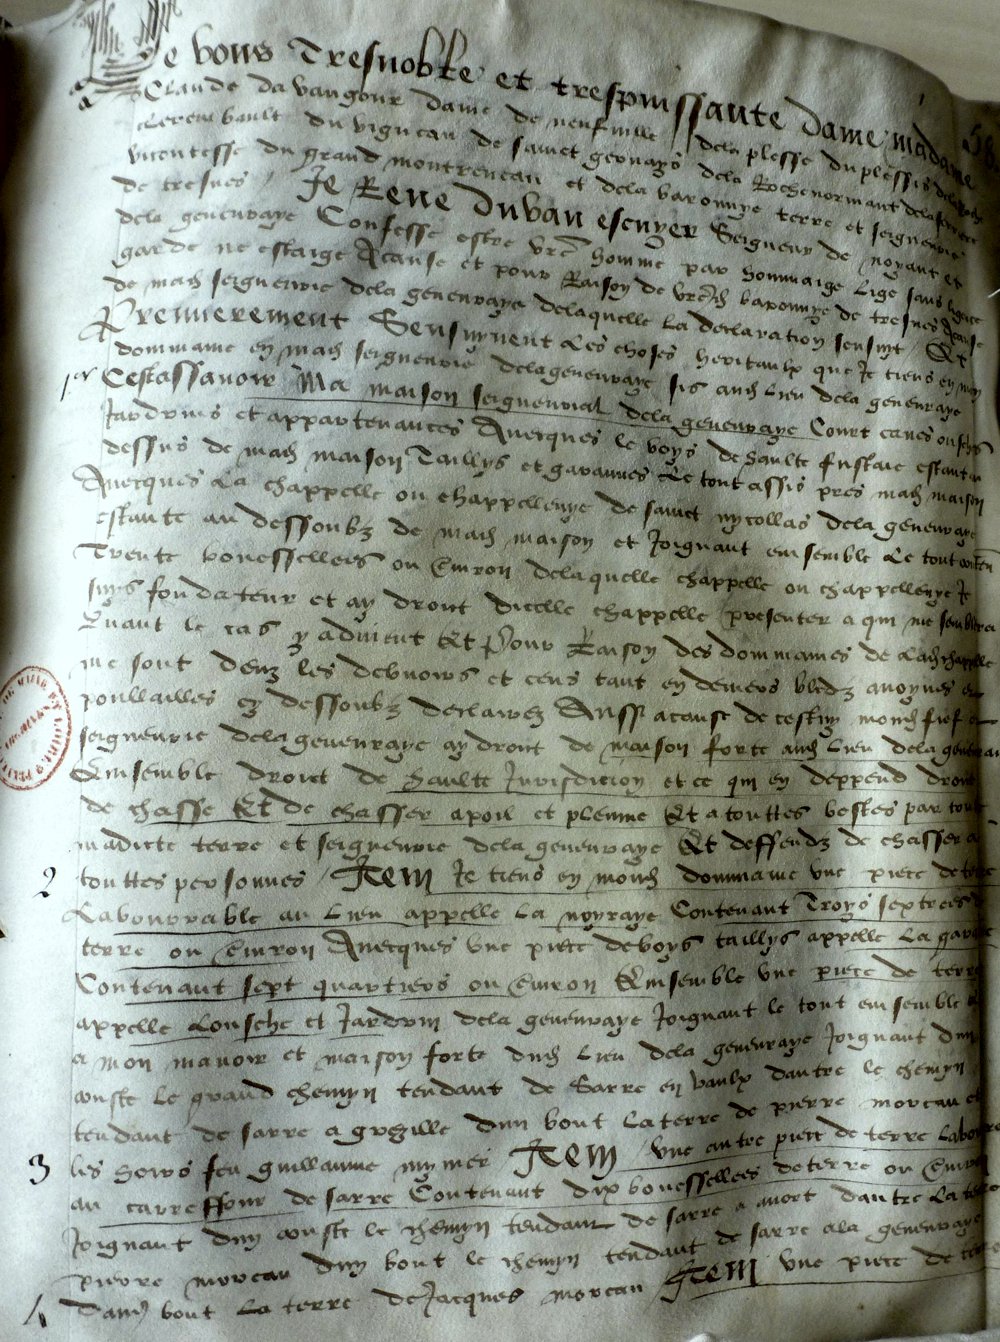 De vous Tresnoble et trespuissante dame madame
Claude davaugour dame de neufville dela plesse du plessis dela
clerembault du vigneau de sainct gervays dela Rochenormant dela
vicontesse du grand montreveau et dela baronnye terre et seigneurie
de tresves / Je Rene du van escuyer Seigneur de noyant et
dela genevraye Confesse estre vre homme par hommaige lige sans
garde ne estaige Acause et pour Raison de vre baronnye de tresves Acause
de mad seigneurie dela genevraye delaquelle la declaration sensuyt Et
Premierement Sensuyvent les choses heritaulx que Je tiens en mon
dommaine en mad seigneurie dela genevraye sis aud lieu dela genevraye
1er Cestassavoir Ma maison seigneurial dela genevraye Court caves
Jardrins et appartenances Avecques le boys de haulte fustaie estant
dessus de mad maison Taillys et garannes Le tout assis pres mad maison
Avecques La chappelle ou chappellenye de sainct nycollas dela genevraye
estante au dessoubz de mad maison et Joignant emsemble Le tout
Trente bouessellees ou Emron delaquelle chappelle ou chappellenye Je
suys fondateur et ay droict dicelle chappelle presenter a qui me semblera
Quant le cas y advient Et Pour Raison des dommaines de lad chappelle
me sont deuz les debvoirs et cens tant en deniers bledz avoynes
poullailles cy dessoubz declairez Aussi acause de cestuy mond fief
seigneurie dela genevraye ay droict de maison forte aud lieu dela
Emsemble droict de haulte Jurisdicion et ce qui en deppend droict
de chasse Et de chasser apoil et plemme Et a touttes bestes par
madicte terre et seigneurie dela genevraye Et deffendz de chasser a
2 touttes personnes / Item Je tiens en mond dommaine une piece de
Labourable au lieu appelle La noyraye Contenant Troys sextrees
terre ou Emron Avecques une piece de boys taillys appelle La
Contenant sept quartiers ou Emron Emsemble une piece de terre
appelle Lousche et Jardrin dela genevraye Joignant le tout emsemble
a mon manoir et maison forte dud Lieu dela genevraye Joignant dun
couste Le grand chemyn tendant de Sarre en vaulx dautre le chemyn
tendant de sarre a grezille dun bout La terre de pierre moreau et
3 les hoirs feu guillaume mymer Item une autre piece de terre
au carreffour de sarre Contenant dix bouessellees de terre ou Emron
Joignant dun couste le chemyn tendant de sarre a dautre La terre
pierre moreau dun bout le chemyn tendant de sarre ala genevraye
4 Daud bout La terre de Jacques moreau Item une piece de